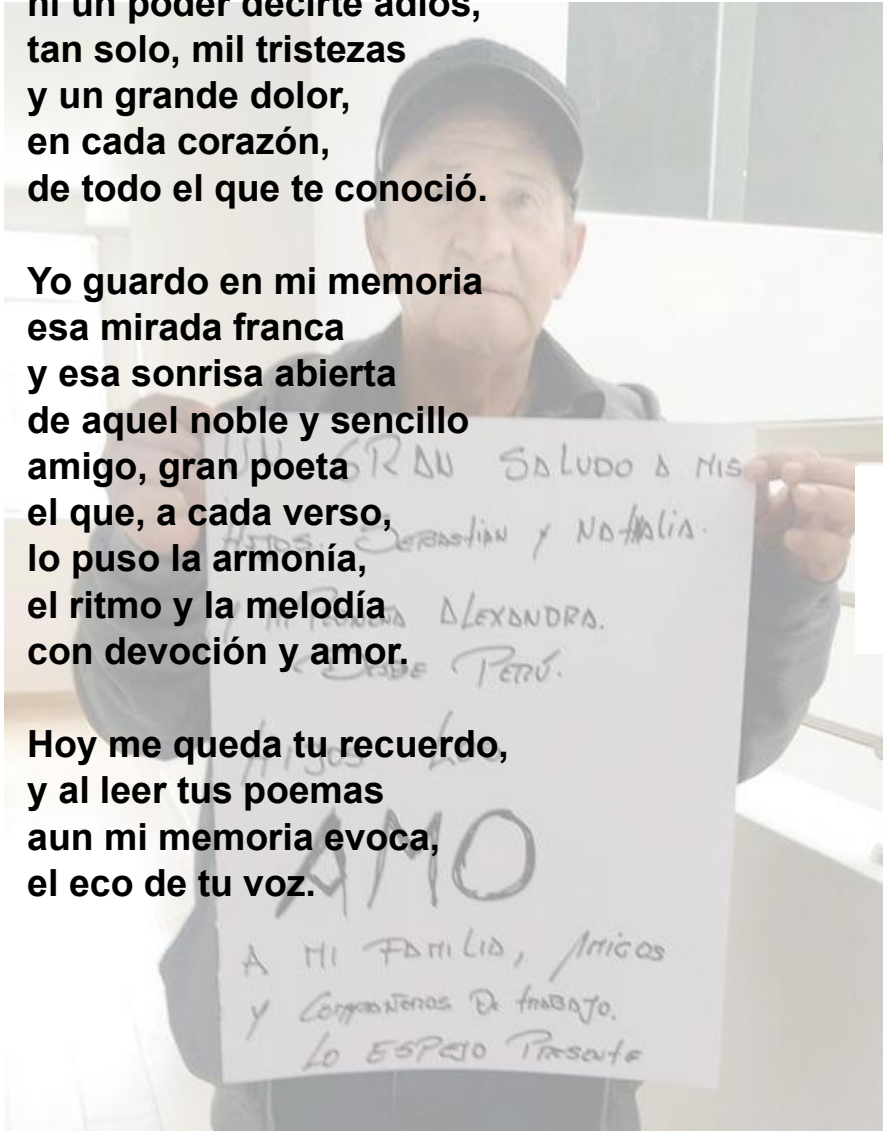 ni un poder decirte adiós,
tan solo, mil tristezas
y un grande dolor,
en cada corazón,
de todo el que te conoció.
Yo guardo en mi memoria
esa mirada franca
y esa sonrisa abierta
de aquel noble y sencillo
amigo, gran poeta
el que, a cada verso,
lo puso la armonía,
el ritmo y la melodía
con devoción y amor.
Hoy me queda tu recuerdo,
y al leer tus poemas
aun mi memoria evoca,
el eco de tu voz.
UN GRAN SALUDO A MIS
HIJOS. SEBASTIAN y NATHALIA.
Y MI PEQUEÑA ALEXANDRA.
DESDE PERÚ.
HIJOS LOS
AMO
A MI FAMILIA, AMIGOS
y COMPAÑEROS DE TRABAJO.
LO ESPEJO PRESENTE